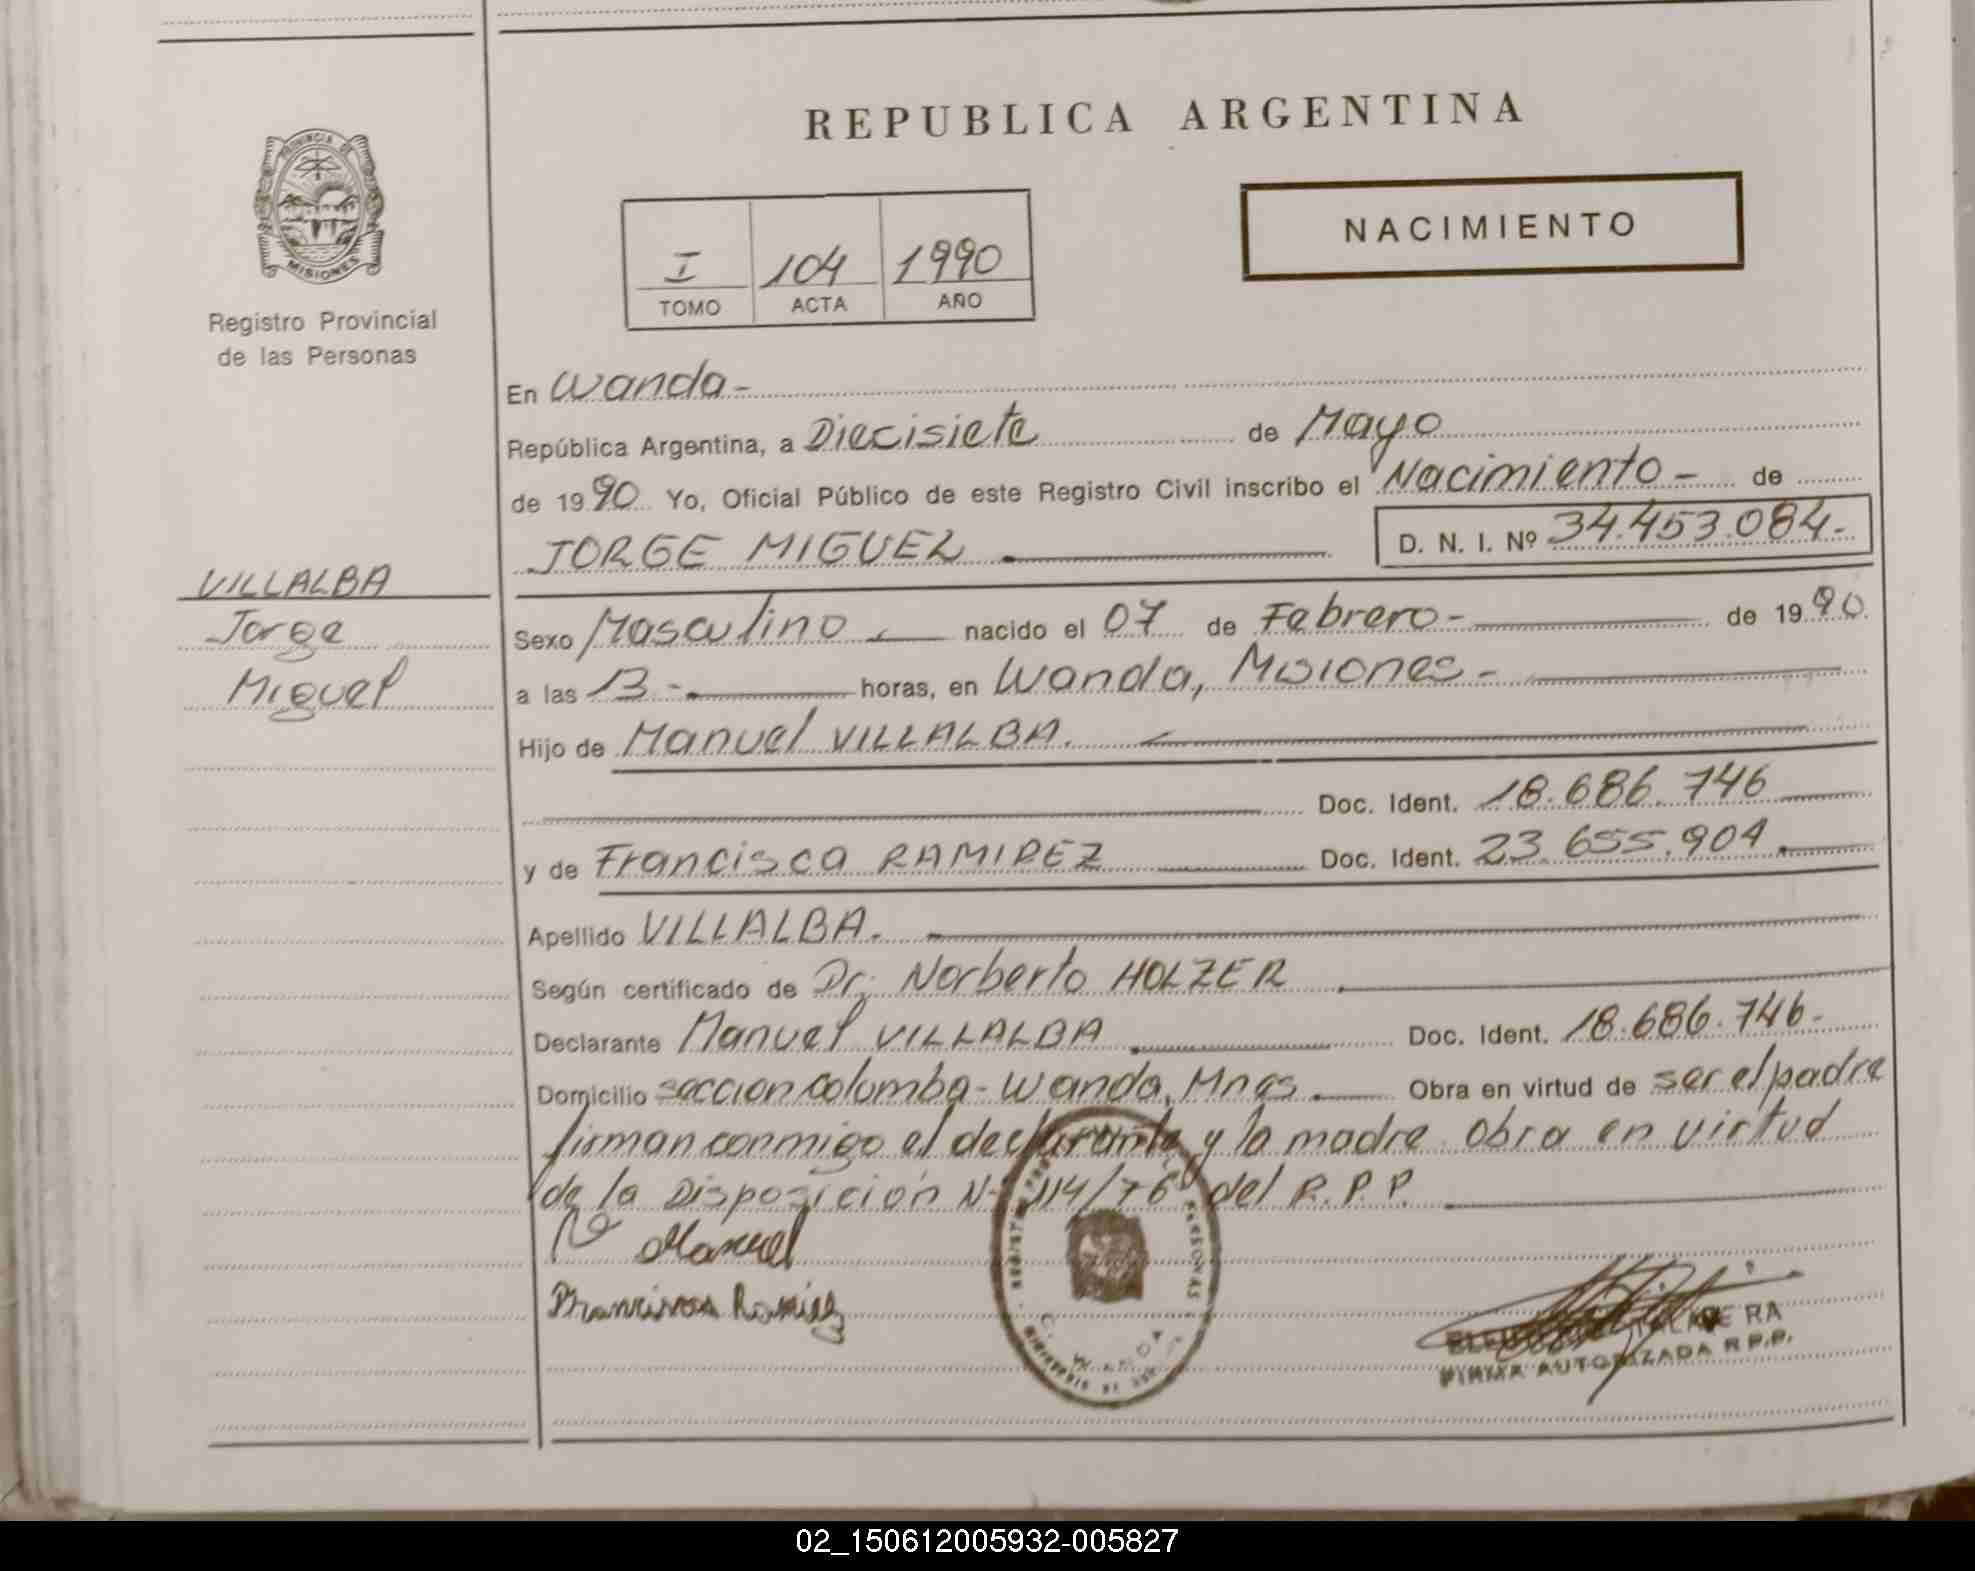 REPUBLICA ARGENTINA
PROVINCIA DE
MISIONES
Registro Provincial
de las Personas
NACIMIENTO
I 104 1990
TOMO ACTA AÑO
En Wanda-
República Argentina, a Diecisiete de Mayo
de 1990 Yo, Oficial Público de este Registro Civil inscribo el Nacimiento- de
JORGE MIGUEL D. N. I. Nº 34.453.084.-
VILLALBA
Jorge
Miguel
Sexo Masculino nacido el 07 de Febrero- de 1990.
a las 13- horas, en Wanda, Misiones-
Hijo de Manuel VILLALBA.
Doc. Ident. 18.686.746
y de Francisca RAMIREZ Doc. Ident. 23.655.904.
Apellido VILLALBA.
Según certificado de Dr. Norberto HOLZER
Declarante Manuel VILLALBA Doc. Ident. 18.686.746-
Domicilio seccion colomba- Wanda, Mnes. Obra en virtud de ser el padre
firman conmigo el declarante y la madre. Obra en virtud
de la Disposición N- 114/76 del R.P.P.
Manuel
Ramirez
PERSONAS
FIRMA AUTORIZADA R.P.P.
02_150612005932-005827